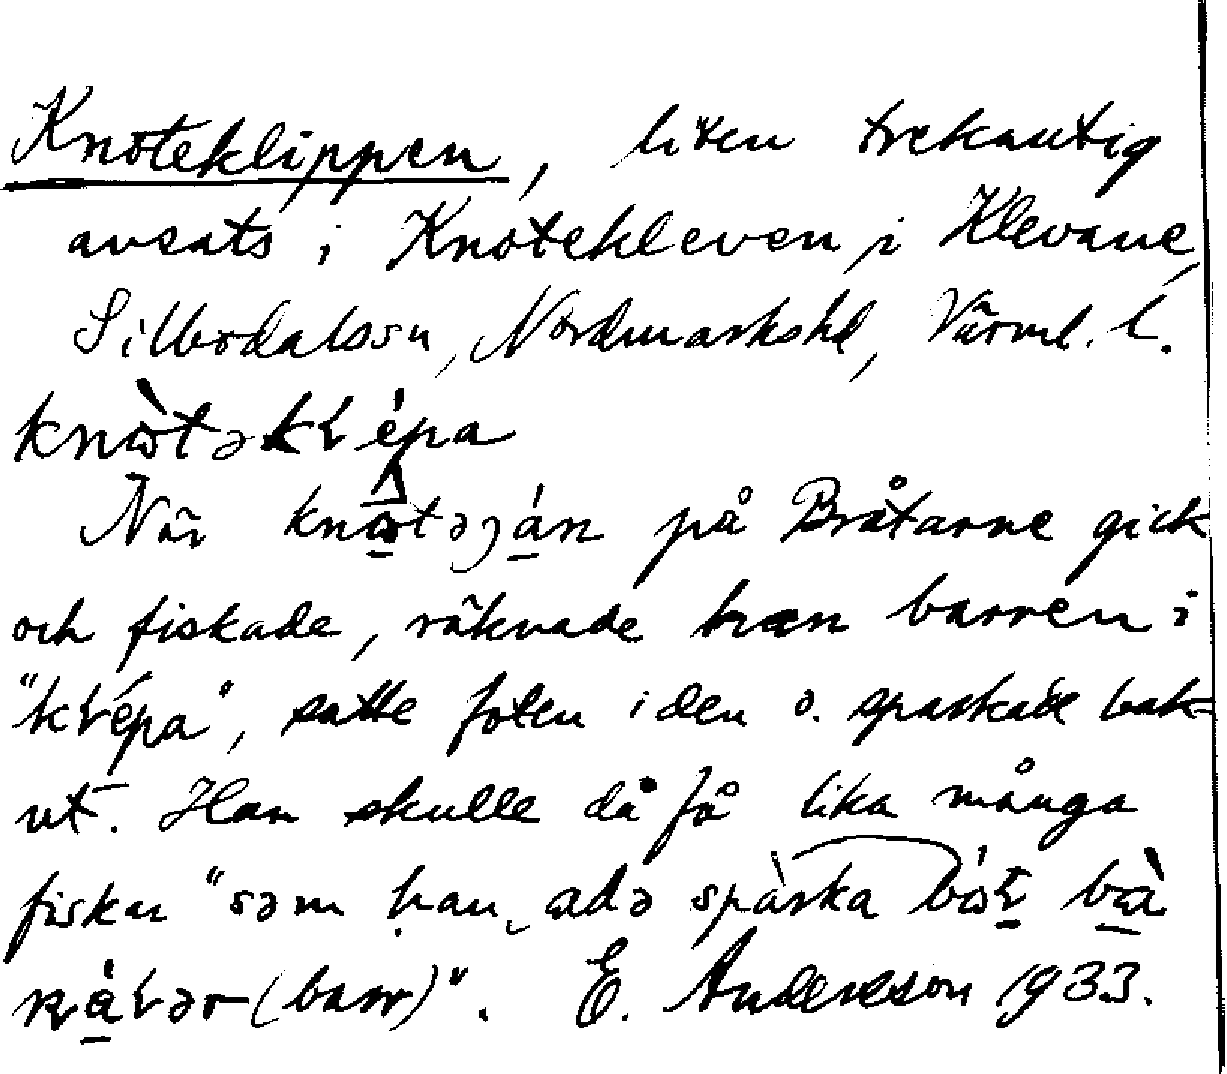 Knoteklippen, liten trekantig
avsats i Knotekleven i Klevane,
Silbodalssn, Nordmarkshd, Värml. l.
När på Bråtarne gick
och fiskade, räknade han barren i
satte foten i den o. sparkade bak-
ut. Han skulle då få lika många
fiskar "səm han adə spàrka
(barr)". E. Andersson 1933.